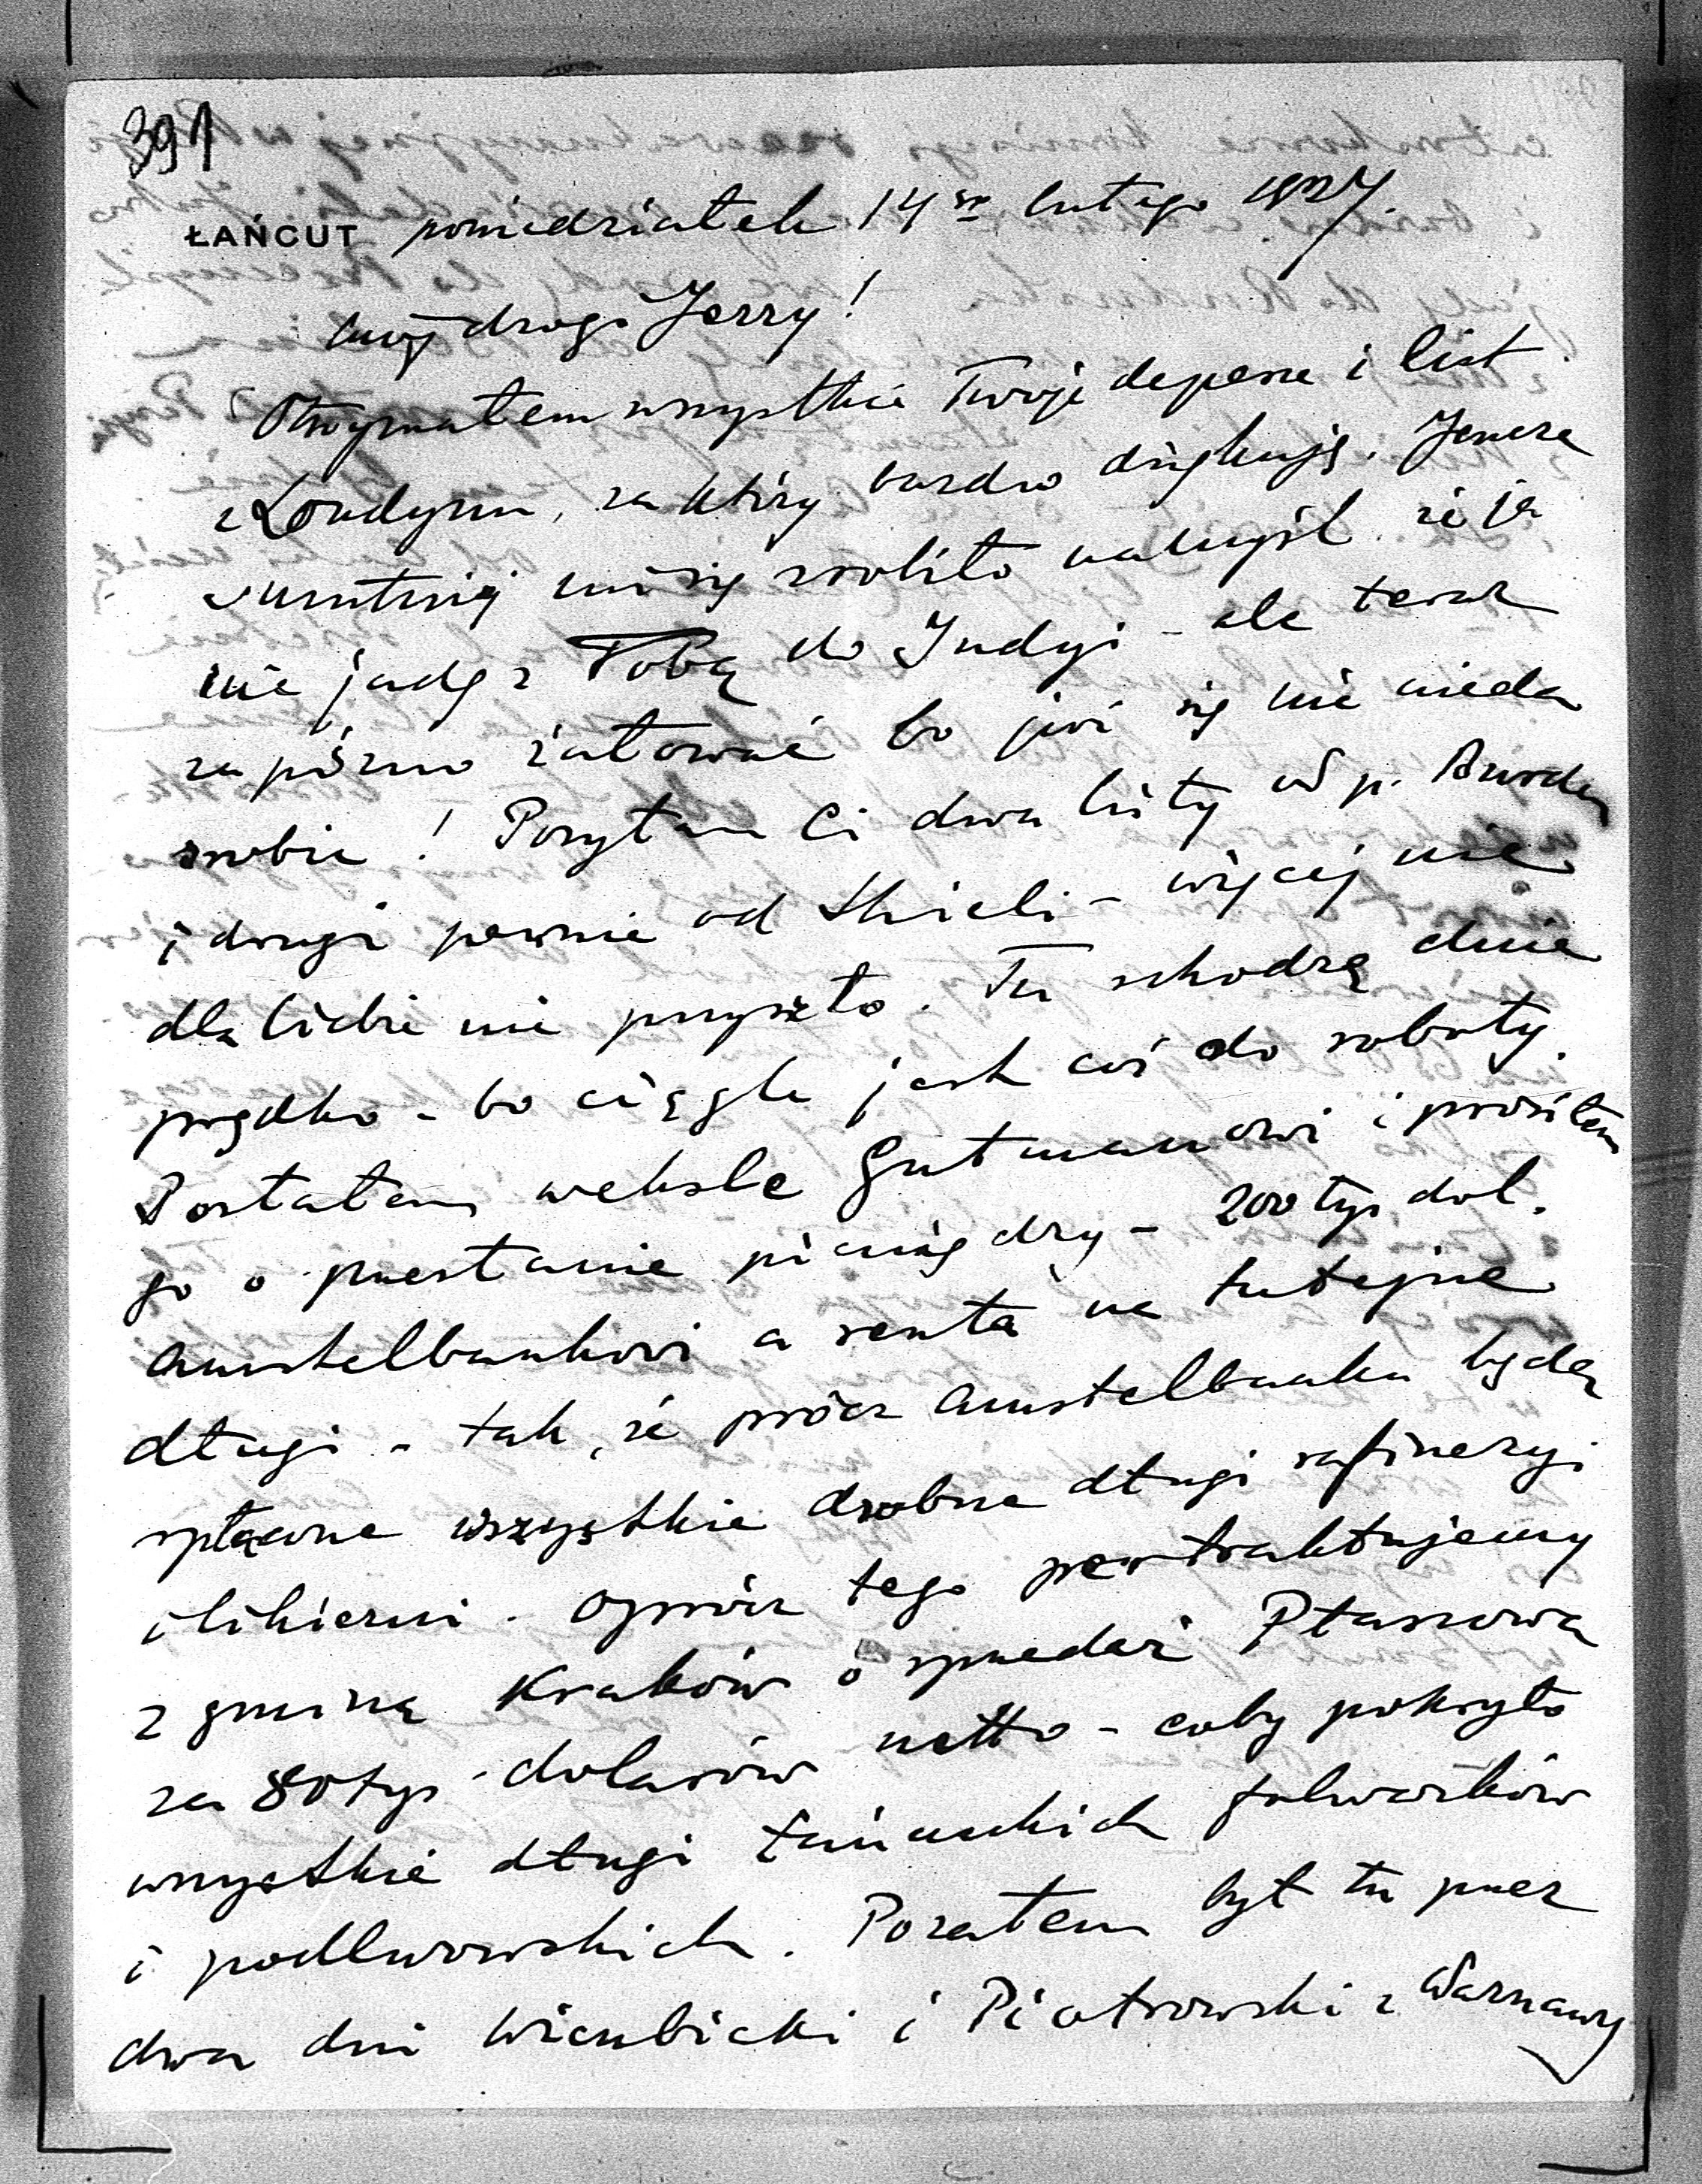 391
ŁAŃCUT poniedziałek 14go lutego 1927.
mój drogi Jerzy!
Otrzymałem wszystkie Twoje depesze i list
z Londynu, za który bardzo dziękuję. Jeszcze
smutniej mi się zrobiło na myśl że ja
nie jadę z Tobą do Indyi - ale teraz
za późno żałować bo już się nie nieda
zrobić! Posyłam Ci dwa listy od p.
i drugi pewnie od - więcej nic
dla Ciebie nie przyszło. Tu schodzą dnie
prędko - bo ciągle jest coś do roboty.
Posłałem weksle Gutmanowi i prosiłem
go o przesłanie pieniędzy - 200 tys dol.
Amstelbankowi a resztą na tutejsze
długi - tak, że prócz Amstelbanku będą
spłacone wszystkie drobne długi rafineryi
i likierni. Oprócz tego pertraktujemy
z gminą Kraków o spredaż Ptaszowa
za 80 tys. dolarów netto - coby pokryło
wszystkie długi łańcuckich folwarków
i podlwowskich. Pozatem był tu przez
dwa dni Wierzbicki i Piotrowski z Warszawy